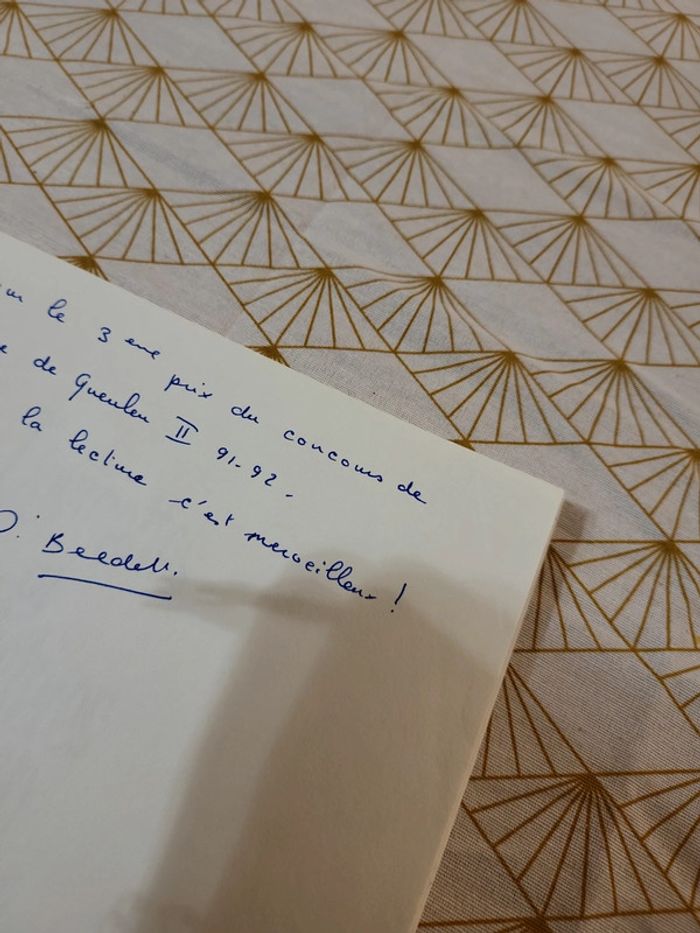 le 3 eme prix du concours de
de Queuleu II 91-92 -
la lecture c'est merveilleux !